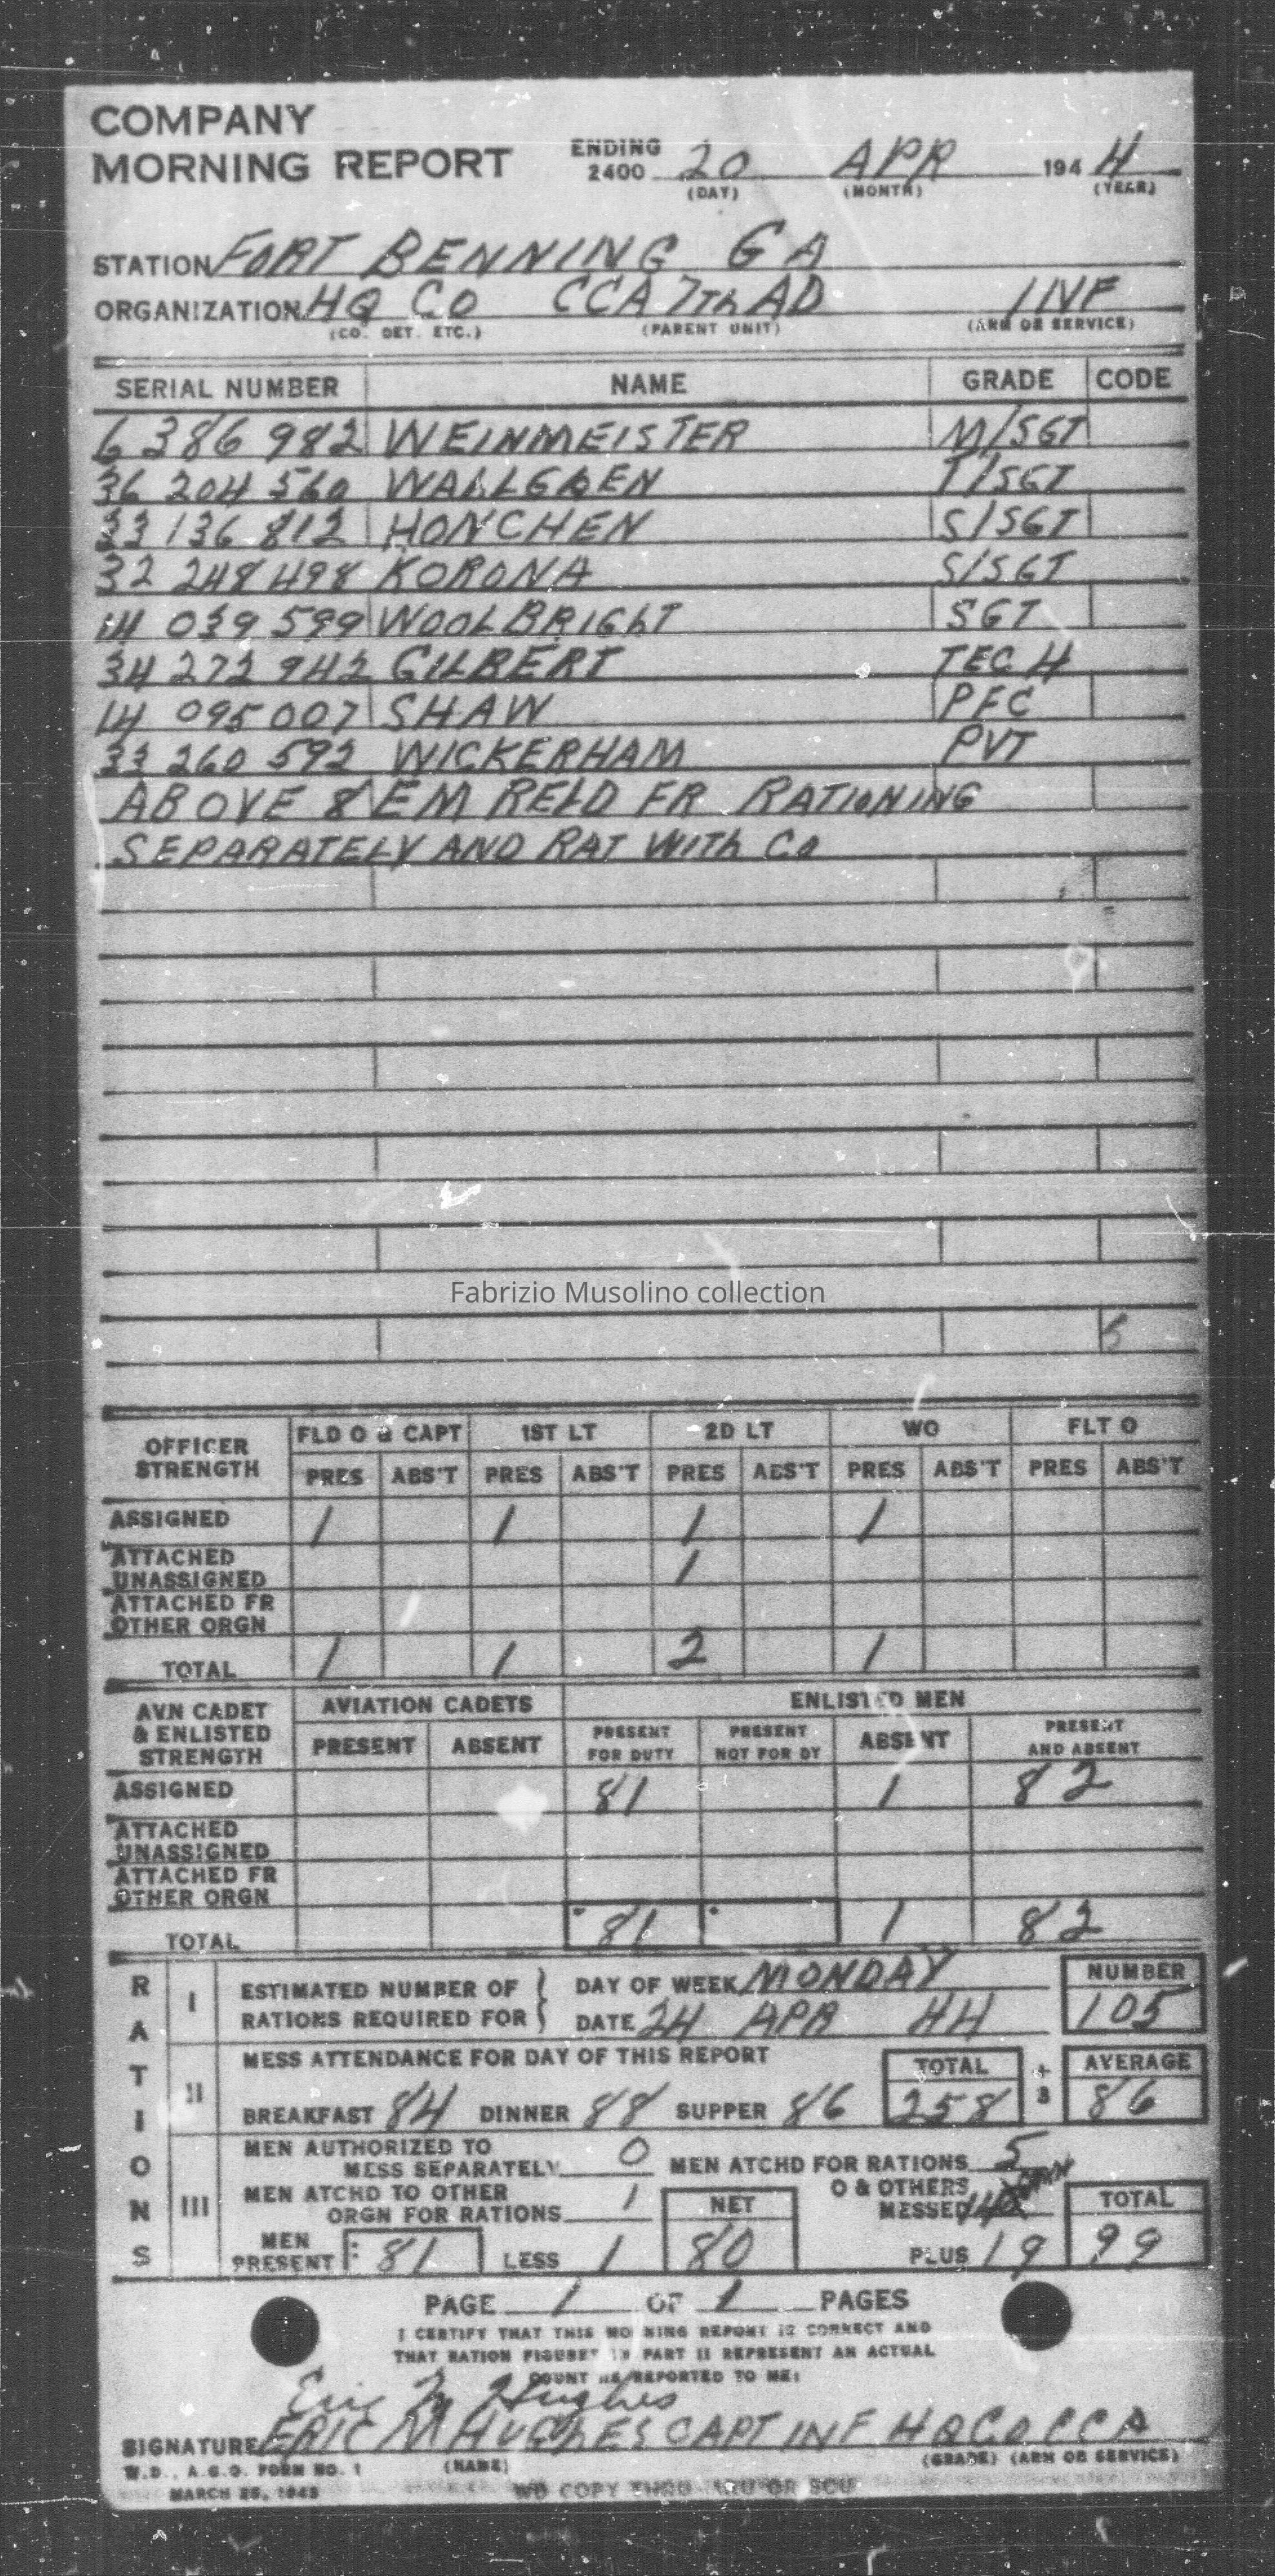 COMPANY
MORNING REPORT ENDING 2400 20 APR 1944
(DAY) (MONTH) (YEAR)
STATION FORT BENNING GA
ORGANIZATION HQ CO CCA 7Th AD INF
(CO. DET. ETC.) (PARENT UNIT) (ARM OR SERVICE)
SERIAL NUMBER NAME GRADE CODE
6 386 982 WEINMEISTER M/SGT
36 204 560 WALLGREN T/SGT
33 136 812 HONCHEN S/SGT
32 248 498 KORONA S/SGT
14 039 599 WOOLBRIGhT SGT
34 272 942 GILBERT TEC 4
14 095 007 SHAW PFC
33 260 592 WICKERHAM PVT
ABOVE 8 EM RELD FR RATIONING
SEPARATELY AND RAT WITh CO
Fabrizio Musolino collection
OFFICER STRENGTH FLD O & CAPT 1ST LT 2D LT WO FLT O
PRES ABS'T PRES ABS'T PRES ABS'T PRES ABS'T PRES ABS'T
ASSIGNED 1 1 1 1
ATTACHED UNASSIGNED 1
ATTACHED FR OTHER ORGN
TOTAL 1 1 2 1
AVN CADET & ENLISTED STRENGTH AVIATION CADETS ENLISTED MEN
PRESENT ABSENT PRESENT FOR DUTY PRESENT NOT FOR DY ABSENT PRESENT AND ABSENT
ASSIGNED 81 1 82
ATTACHED UNASSIGNED
ATTACHED FR OTHER ORGN
TOTAL 81 1 82
RATIONS
I ESTIMATED NUMBER OF DAY OF WEEK MONDAY NUMBER
RATIONS REQUIRED FOR DATE 24 APR 44 105
II MESS ATTENDANCE FOR DAY OF THIS REPORT TOTAL ÷ 3 AVERAGE
BREAKFAST 84 DINNER 88 SUPPER 86 258 86
III MEN AUTHORIZED TO MESS SEPARATELY 0 MEN ATCHD FOR RATIONS 5
MEN ATCHD TO OTHER ORGN FOR RATIONS 1 NET O & OTHERS MESSED TOTAL
MEN PRESENT 81 LESS 1 80 PLUS 19 99
PAGE 1 OF 1 PAGES
I CERTIFY THAT THIS MORNING REPORT IS CORRECT AND
THAT RATION FIGURES IN PART II REPRESENT AN ACTUAL
COUNT AS REPORTED TO ME:
Eric M Hughes
SIGNATURE ERIC M HUGhES CAPT INF HQ CO CCA
(NAME) (GRADE) (ARM OR SERVICE)
W.D., A.G.O. FORM NO. 1
MARCH 25, 1943
WD COPY THRU